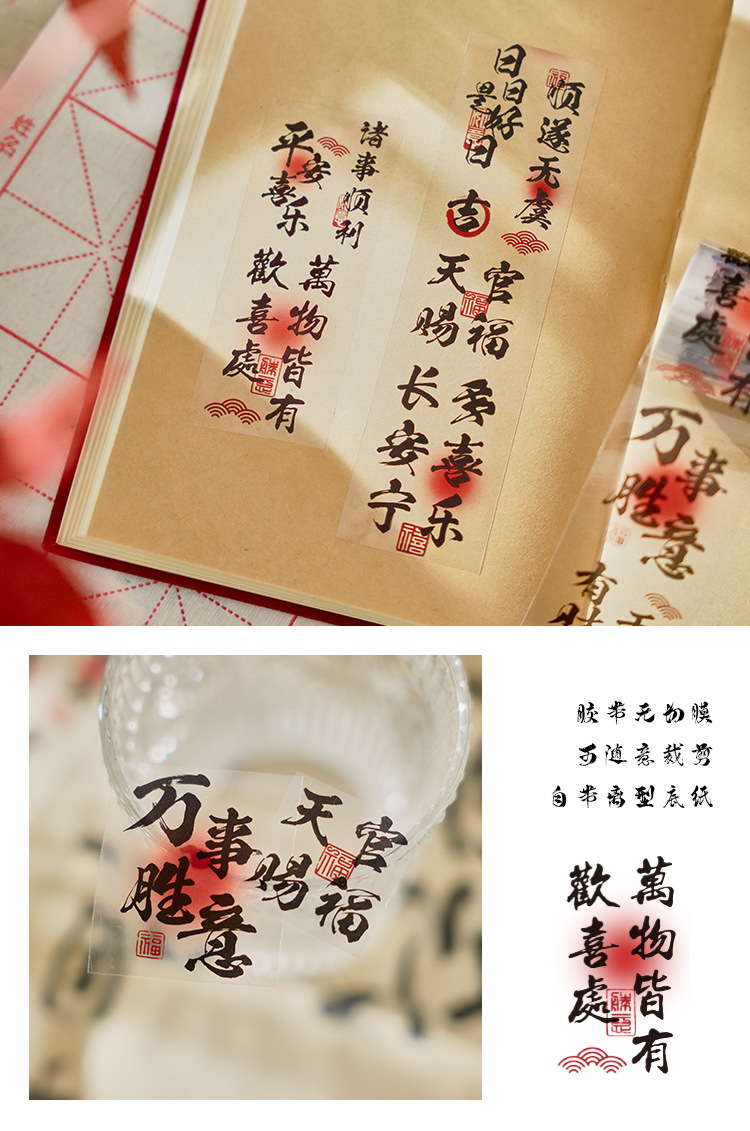 姓名
诸事顺利
平安喜乐
萬物皆有
歡喜處
顺遂无虞
日日是好日
吉
天官
赐福
多喜乐
长安宁
福
禧
喜處
有
万事
胜意
有
万事
胜意
福
天官
赐福
福
胶带无切膜
可随意裁剪
自带离型底纸
萬物皆有
歡喜處